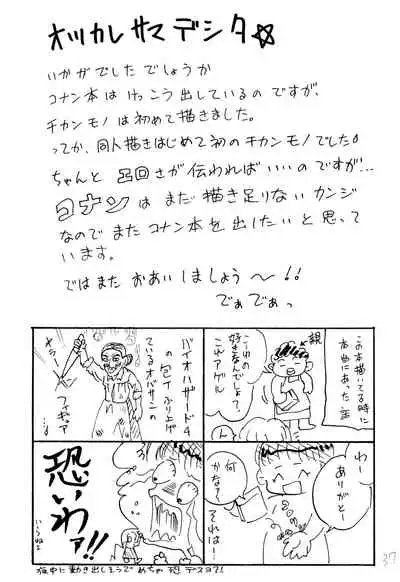 オツカレサマデシタ☆
いかがでしたでしょうか
コナン本はけっこう出しているのですが、
チカンモノは初めて描きました。
ってか、同人描きはじめて初のチカンモノでした!
ちゃんとエロさが伝わればいいのですが…
コナンはまだ描き足りないカンジ
なのでまたコナン本を出したいと思って
います。
ではまたおあいしましょう〜!!
でぁでぁっ
この本描いてる時に
本当にあった話
親
こーゆの
好きなんでしょ?
これアゲル
わー
ありがとー
何
かな?
それは!
バイオハザード4
の包丁ふりあげ
ているオバサンの
フィギュア
恐いわァ!!
夜中に動き出しそうで めちゃ恐デスヨ?!
37